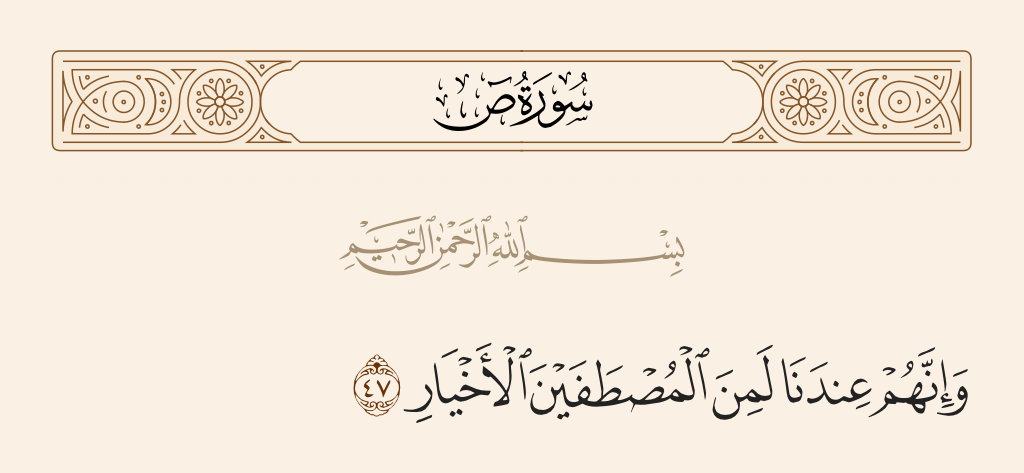 سُورَةُ صٓ
بِسْمِ ٱللَّهِ ٱلرَّحْمَٰنِ ٱلرَّحِيمِ
وَإِنَّهُمْ عِندَنَا لَمِنَ ٱلْمُصْطَفَيْنَ ٱلْأَخْيَارِ ٤٧